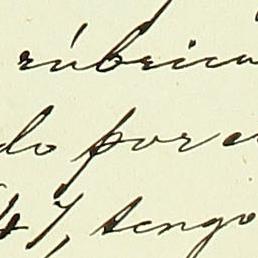 rúbrica
do por
47, tengo